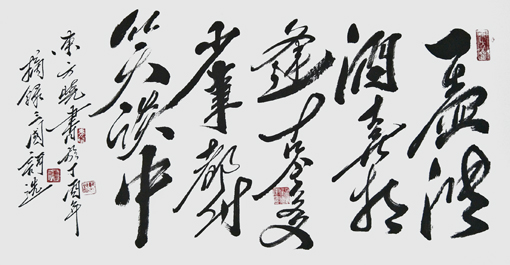 一壶浊
酒喜相
逢古今多
少事都付
笑谈中
东方晓书于丁酉年
摘录三国词选